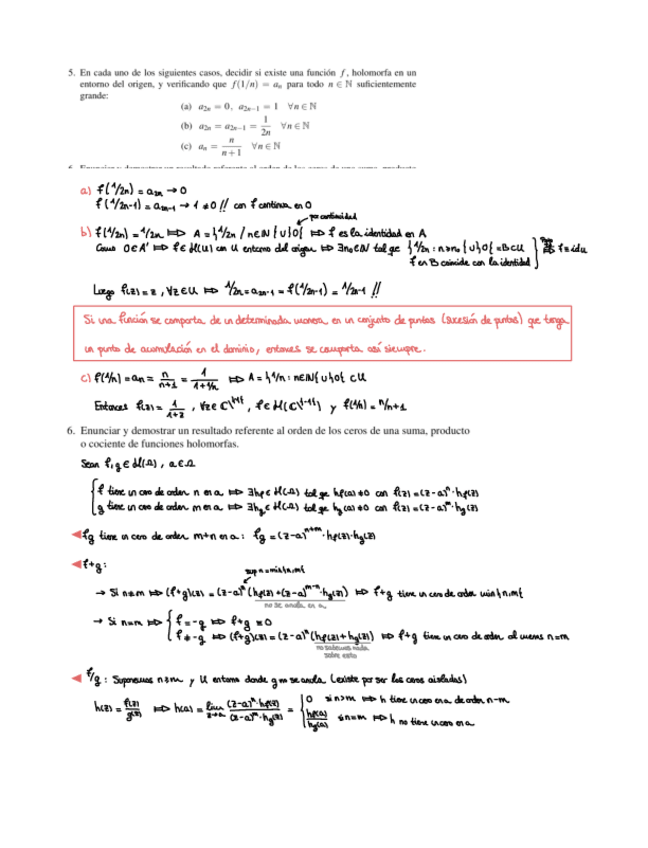 5. En cada uno de los siguientes casos, decidir si existe una función f, holomorfa en un
entorno del origen, y verificando que f(1/n) = aₙ para todo n ∈ ℕ suficientemente
grande:
(a) a₂ₙ = 0, a₂ₙ₋₁ = 1 ∀n ∈ ℕ
(b) a₂ₙ = a₂ₙ₋₁ = 1/2n ∀n ∈ ℕ
(c) aₙ = n/(n+1) ∀n ∈ ℕ
a) f(1/2n) = a₂ₙ → 0
f(1/2n-1) = a₂ₙ₋₁ → 1 ≠ 0 !! con f continua en 0
por continuidad
b) f(1/2n) = 1/2n ⟹ A = {1/2n / n∈ℕ} ∪ {0} ⟹ f es la identidad en A
Como 0 ∈ A' ⟹ f ∈ H(U) con U entorno del origen ⟹ ∃n₀∈ℕ tal que {1/2n : n≥n₀} ∪ {0} = B ⊂ U
f en B coincide con la identidad
⟹ f = id_U
Luego f(z) = z, ∀z∈U ⟹ 1/2n = a₂ₙ₋₁ = f(1/2n-1) = 1/2n-1 !!
Si una función se comporta de un determinada manera en un conjunto de puntos (sucesión de puntos) que tenga
un punto de acumulación en el dominio, entonces se comporta así siempre.
c) f(1/n) = aₙ = n/(n+1) = 1/(1+1/n) ⟹ A = {1/n : n∈ℕ} ∪ {0} ⊂ U
Entonces f(z) = 1/(1+z), ∀z∈ℂ\{-1}, f∈H(ℂ\{-1}) y f(1/n) = n/n+1
6. Enunciar y demostrar un resultado referente al orden de los ceros de una suma, producto
o cociente de funciones holomorfas.
Sean f, g ∈ H(Ω), a ∈ Ω
f tiene un cero de orden n en a ⟹ ∃h_f ∈ H(Ω) tal que h_f(a) ≠ 0 con f(z) = (z-a)ⁿ·h_f(z)
g tiene un cero de orden m en a ⟹ ∃h_g ∈ H(Ω) tal que h_g(a) ≠ 0 con f(z) = (z-a)ᵐ·h_g(z)
fg tiene un cero de orden m+n en a: fg = (z-a)ⁿ⁺ᵐ·h_f(z)·h_g(z)
f+g:
sup n = min{n,m}
→ Si n≠m ⟹ (f+g)(z) = (z-a)ⁿ(h_f(z)+(z-a)ᵐ⁻ⁿ·h_g(z)) ⟹ f+g tiene un cero de orden min{n,m}
no se anula en a
→ Si n=m ⟹ f = -g ⟹ f+g ≡ 0
f ≠ -g ⟹ (f+g)(z) = (z-a)ⁿ(h_f(z)+h_g(z)) ⟹ f+g tiene un cero de orden al menos n=m
no sabemos nada
sobre esto
f/g: Suponemos n≥m y U entorno donde g no se anula (existe por ser los ceros aislados)
h(z) = f(z)/g(z) ⟹ h(a) = lim z→a (z-a)ⁿ·h_f(z)/(z-a)ᵐ·h_g(z) = 0 si n>m ⟹ h tiene un cero en a de orden n-m
h_f(a)/h_g(a) si n=m ⟹ h no tiene un cero en a